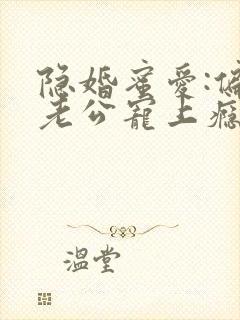 隐婚蜜爱:偏
老公宠上瘾
温堂